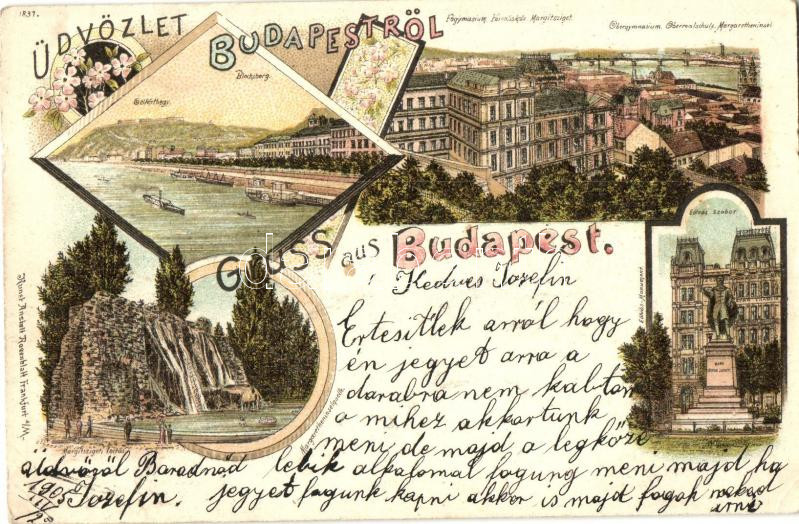 1837.
ÜDVÖZLET
BUDAPESTRÖL
Fögymasium Margitsziget.
Obergymnasium. Oberrealschule. Margaretheninsel
Gellérthegy.
Blocksberg.
Eötvös szobor
Eötvös-Monument
GRUSS aus Budapest.
Kunst Anstalt Rosenblatt Frankfurt a/M.
Margitszigeti forrás
Margaretheninselquelle
Kedves Jozefin
Ertesitlek arról hogy
én jegyet arra a
darabra nem kabtam
a mihez akkartunk
meni de majd a legköze
lebik alkalomal fogung meni majd ha
jegyet fogunk kapni akkor is majd fogok neked
irni
üdvözöl Baradnád
Jozefin.
1905